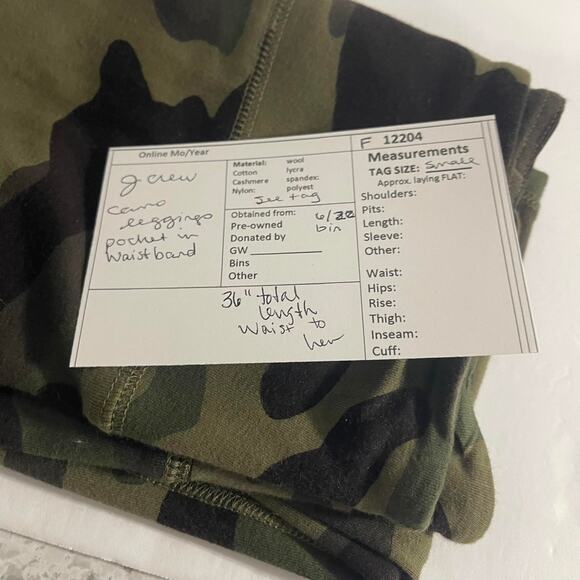 Online Mo/Year
J crew
camo
leggings
pocket in
waistband
Material: wool
Cotton lycra
Cashmere spandex:
Nylon: polyest
See tag
Obtained from: 6/22
Pre-owned bin
Donated by
GW
Bins
Other
36" total
length
waist to
hem
F 12204
Measurements
TAG SIZE: Small
Approx. laying FLAT:
Shoulders:
Pits:
Length:
Sleeve:
Other:
Waist:
Hips:
Rise:
Thigh:
Inseam:
Cuff: